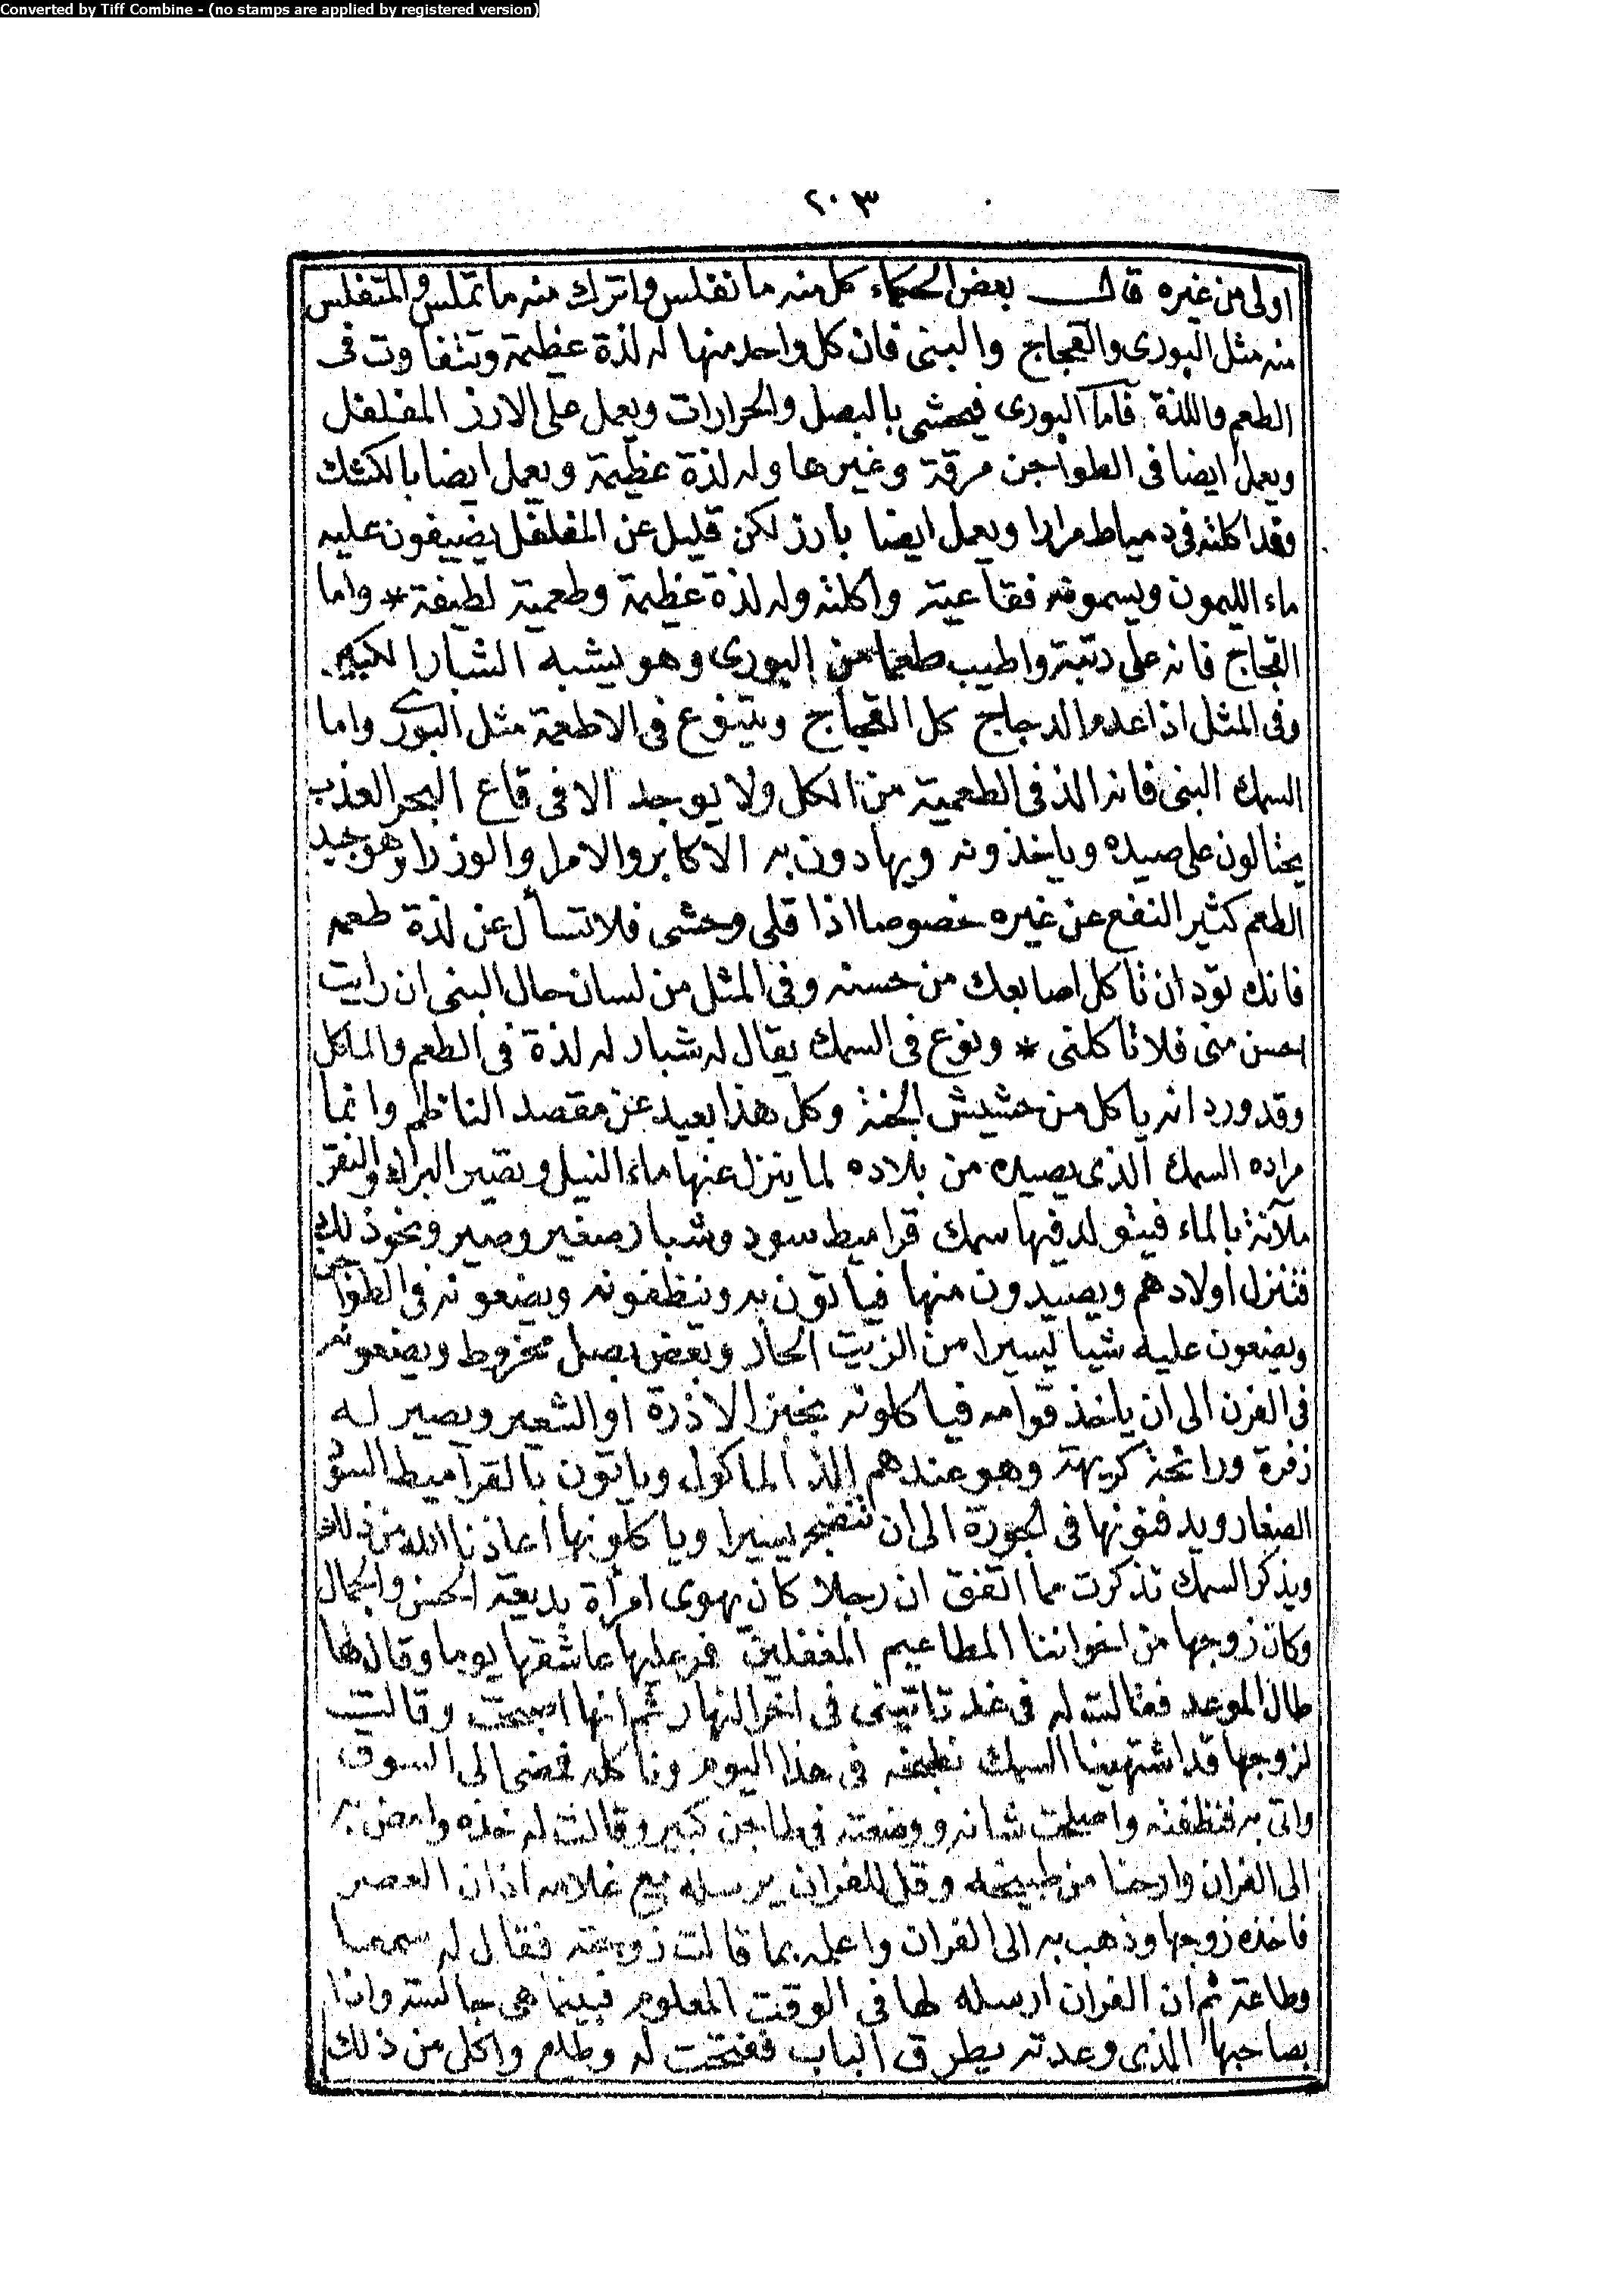 Converted by Tiff Combine - (no stamps are applied by registered version)
٢٠٣
اولى من غيره قال بعض الحكماء كل منه ما تفلس واترك منه ما تملس والمتفلس
منه مثل البورى والقجاج والبنى فان كل واحد منها له لذة عظيمة وتتفاوت فى
الطعم واللذة فاما البورى فيحشى بالبصل والحرارات ويعمل على الارز المفلفل
ويعمل ايضا فى الطواجن مرقة وغيرها وله لذة عظيمة ويعمل ايضا بالكشك
وقد اكلته فى دمياط مرارا ويعمل ايضا بارز لكن قليل عن المفلفل يضيفون عليه
ماء الليمون ويسمونه فقاعية واكلته وله لذة عظيمة وطعمية لطيفة * واما
القجاج فانه على رتبة واطيب طعما من البورى وهو يشبه الشبار الكبير
وفى المثل اذا عدم الدجاج كل القجاج ويتنوع فى الاطعمة مثل البورى واما
السمك البنى فانه الذ فى الطعمية من الكل ولا يوجد الا فى قاع البحر العذب
يحتالون على صيده وياخذونه ويهادون به الاكابر والامرا والوزرا وهو جيد
الطعم كثير النفع عن غيره خصوصا اذا قلى وحشى فلا تسأل عن لذة طعمه
فانك تود ان تاكل اصابعك من حسنه وفى المثل من لسان حال البنى ان رايت
احسن منى فلا تاكلنى * ونوع فى السمك يقال له شبار له لذة فى الطعم والماكل
وقد ورد انه ياكل من حشيش الجنة وكل هذا بعيد عن مقصد الناظم وانما
مراده السمك الذى يصيده من بلاده لما ينزل عنها ماء النيل وتصير البرك والنقر
ملآنة بالماء فيتولد فيها سمك قراميط سود وشبار صغير وصير ونحو ذلك
فتنزل اولادهم ويصيدون منها فياتون به وينظفونه ويضعونه فى الطواجن
ويضعون عليه شيا يسيرا من الزيت الحار وبعض بصل مخروط ويضعونه
فى الفرن الى ان ياخذ قوامه فياكلونه بخبز الاذرة او الشعير ويصير له
زفرة ورائحة كريهة وهو عندهم الذ الماكول وياتون بالقراميط السود
الصغار ويدفنونها فى الجورة الى ان تنضج يسيرا وياكلونها اعاذنا الله من ذلك
وبذكر السمك تذكرت مما اتفق ان رجلا كان يهوى امرأة بديعة الحسن والجمال
وكان زوجها من اخواننا المطاعيم المغفلين فمر عليها عاشقها يوما وقال لها
طال الموعد فقالت له فى غد تاتينى فى اخر النهار ثم انها اصبحت وقالت
لزوجها قد اشتهينا السمك نطبخه فى هذا اليوم وناكله فمضى الى السوق
واتى به فنظفته واصلحت شانه ووضعته فى طاجن كبير وقالت له خذه وامض به
الى الفران وارحنا من طبيخه وقل للفران يرسله مع غلامه اذان العصر
فاخذه زوجها وذهب به الى الفران واعلمه بما قالت زوجته فقال له سمعا
وطاعة ثم ان الفران ارسله لها فى الوقت المعلوم فبينما هى جالسة واذا
بصاحبها الذى وعدته يطرق الباب ففتحت له وطلع واكل من ذلك